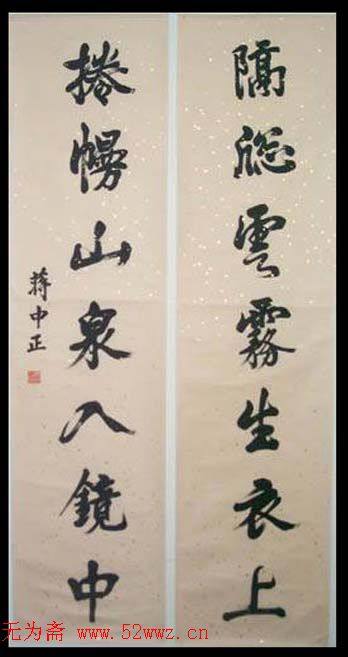 隔窓雲霧生衣上
捲幔山泉入鏡中
蒋中正
无为斋 www.52wwz.cn